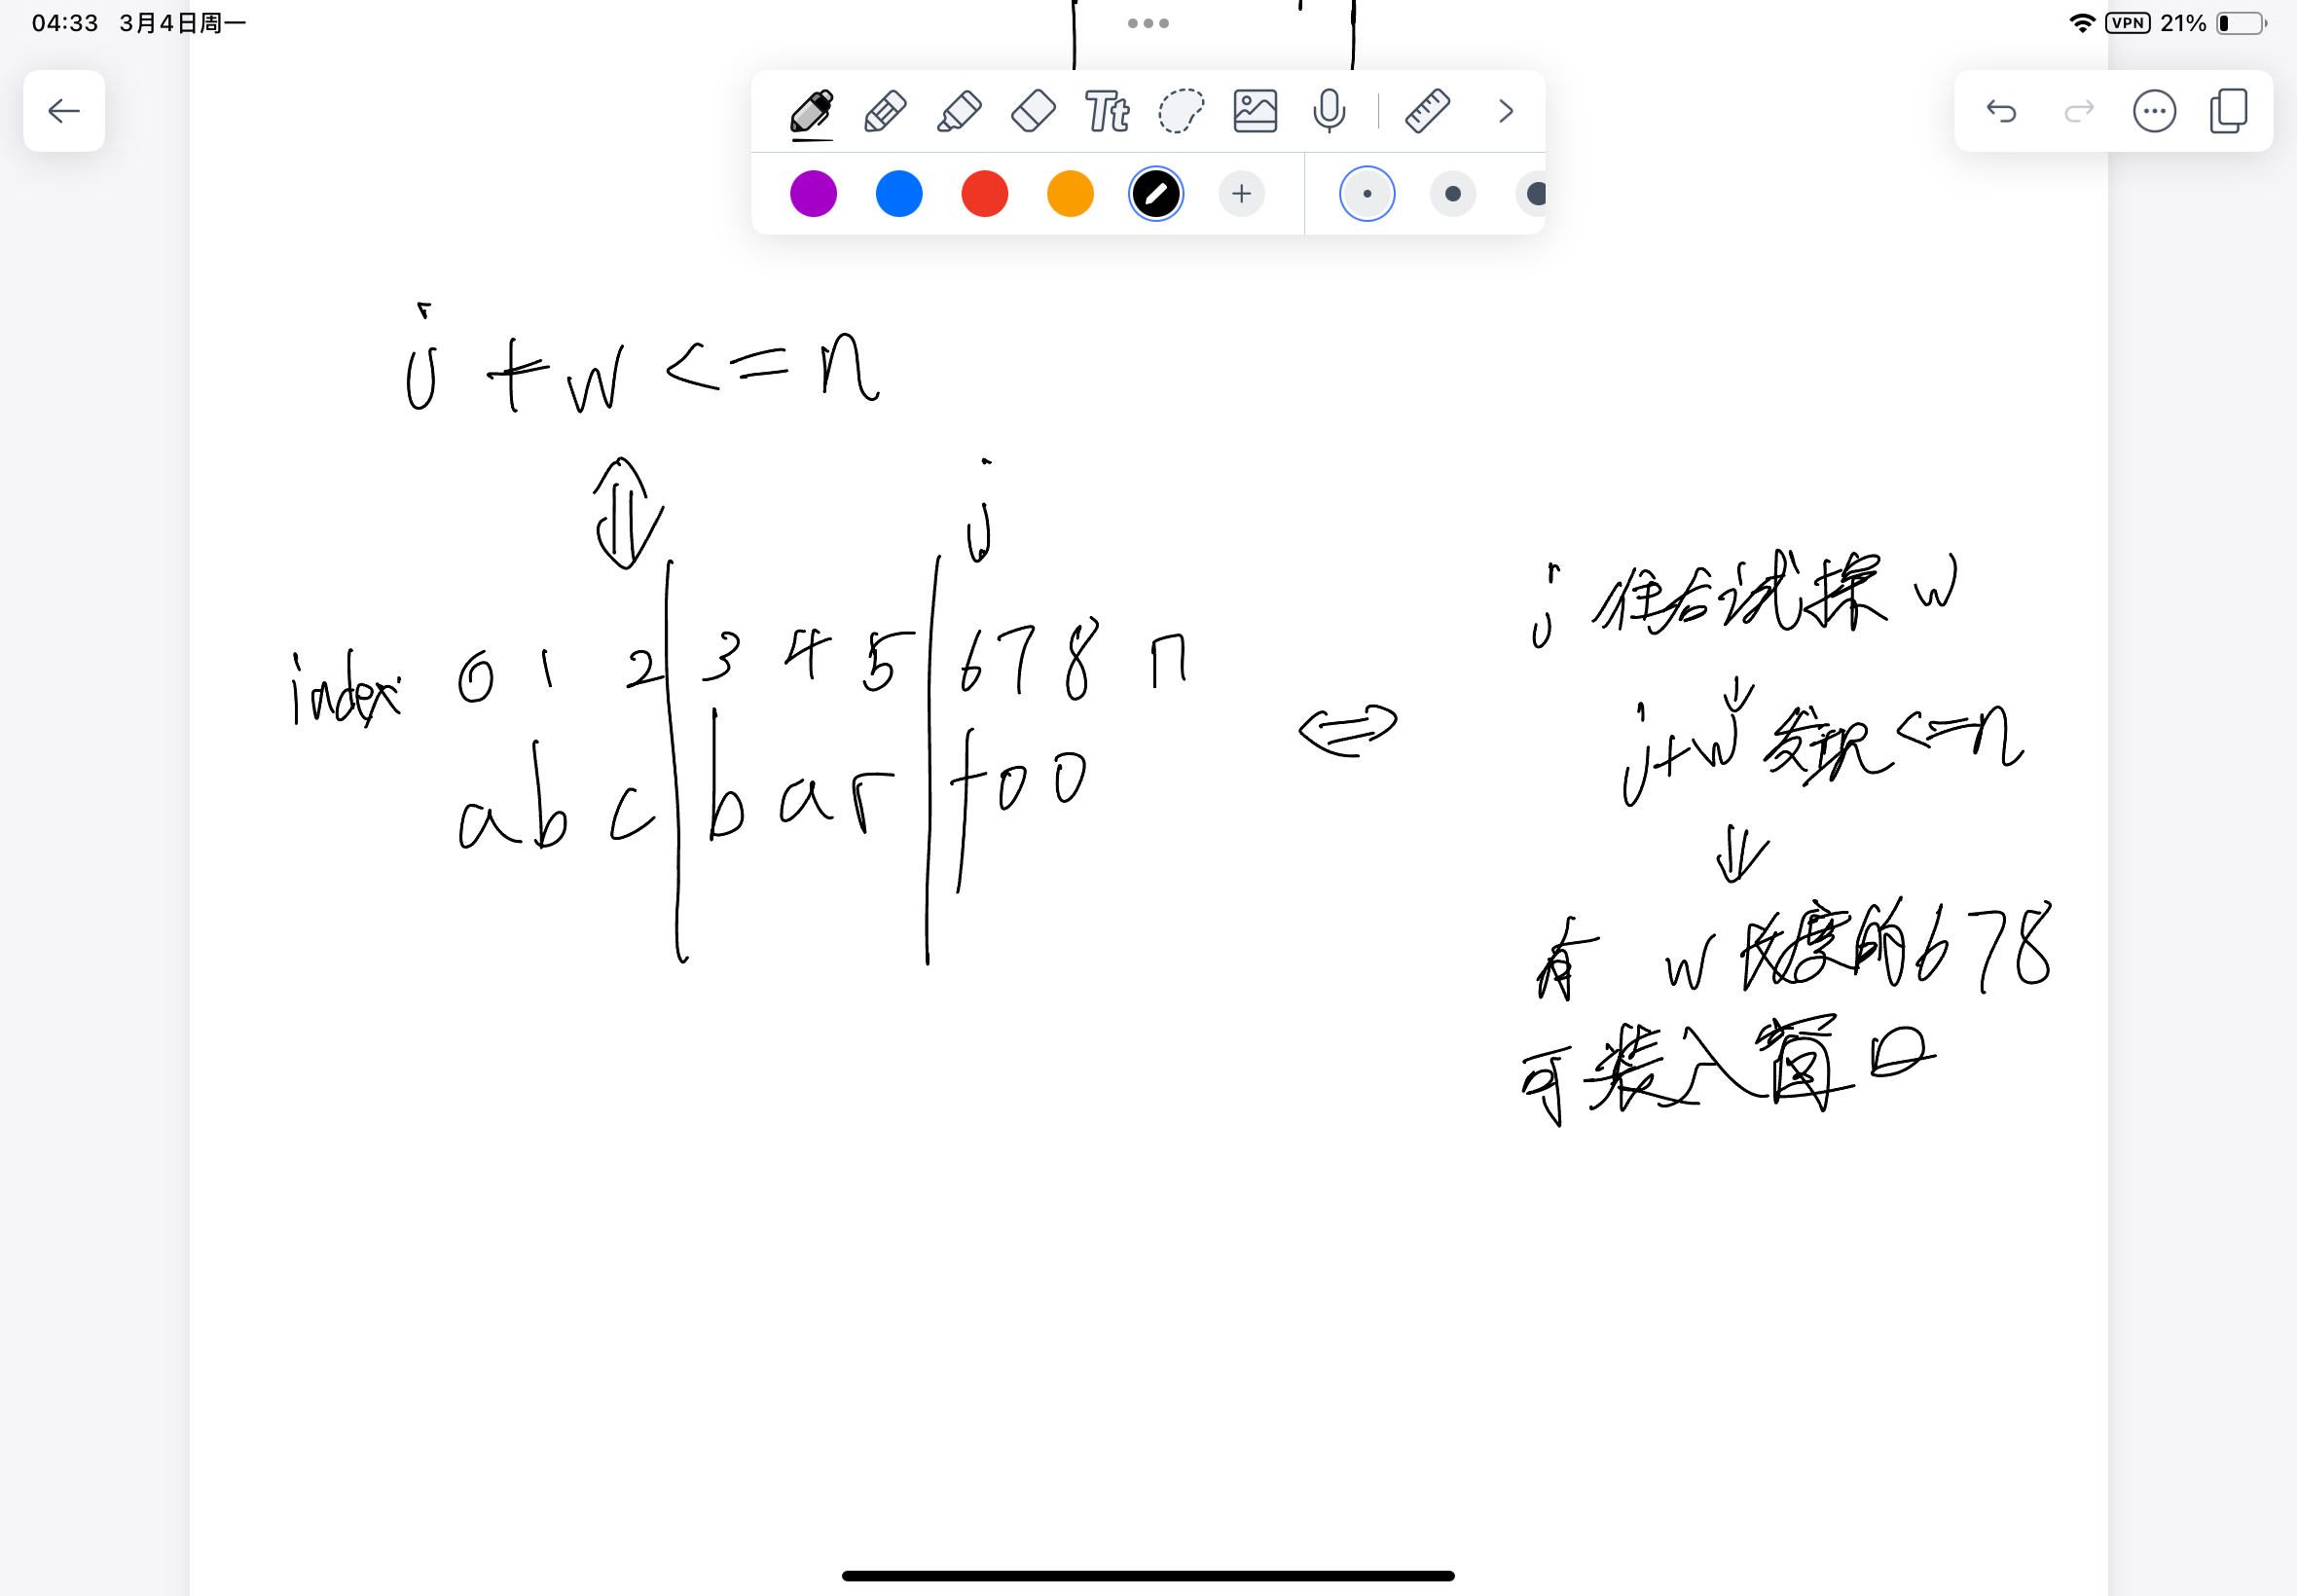 04:33 3月4日周一
VPN 21%
Tt
j + w <= n
j
index: 0 1 2 3 4 5 6 7 8 n
a b c b a r f o o
j 往后试探 w
j+w 发现 <= n
有 w 长度的 6 7 8
可装入窗口